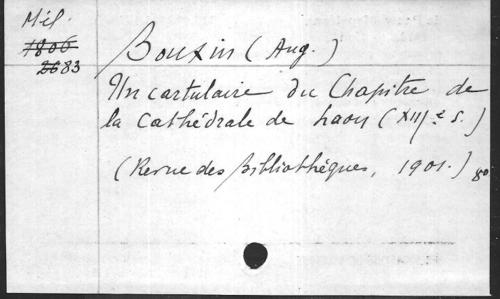 Mél.
1806
2683
Bouxin (Aug.)
Un cartulaire du Chapitre de
la Cathédrale de Laon (XIIIe s.)
(Revue des Bibliothèques, 1901.) 8o